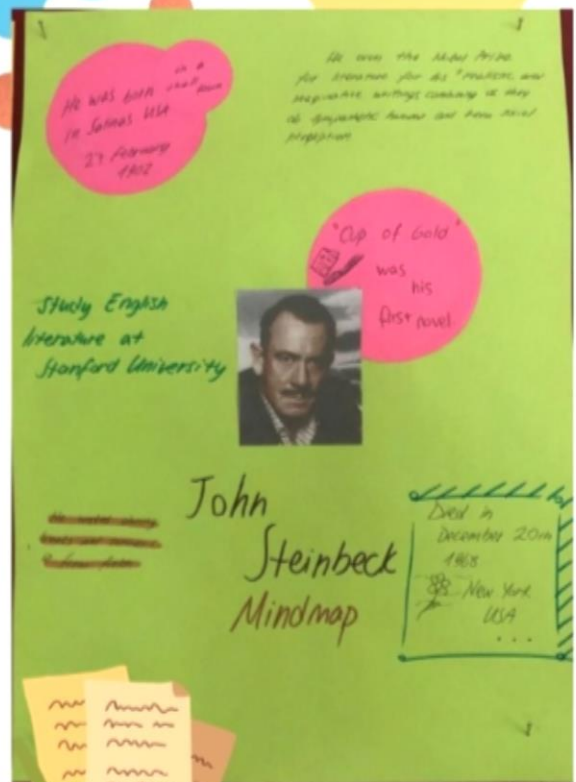 He was born in a small town
in Salinas USA
27 February
1902
He won the Nobel Prize
for literature for his "realistic and
imaginative writings combining as they
do sympathetic humour and keen social
perception
"Cup of Gold"
was
his
first novel
Study English
literature at
Stanford University
John
Steinbeck
Mindmap
Died in
December 20th
1968
New York
USA
...